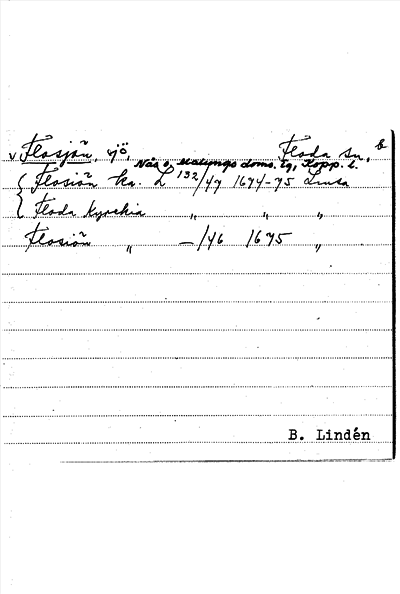 v Flosjön, sjö, Floda sn, b
Nås o. Malungs doms. tg, Kopp. l.
{ Flosiön ka. L 132/47 1674-75
{ Floda Kyrckia " " "
Flosiön " –/46 1675 "
B. Lindén